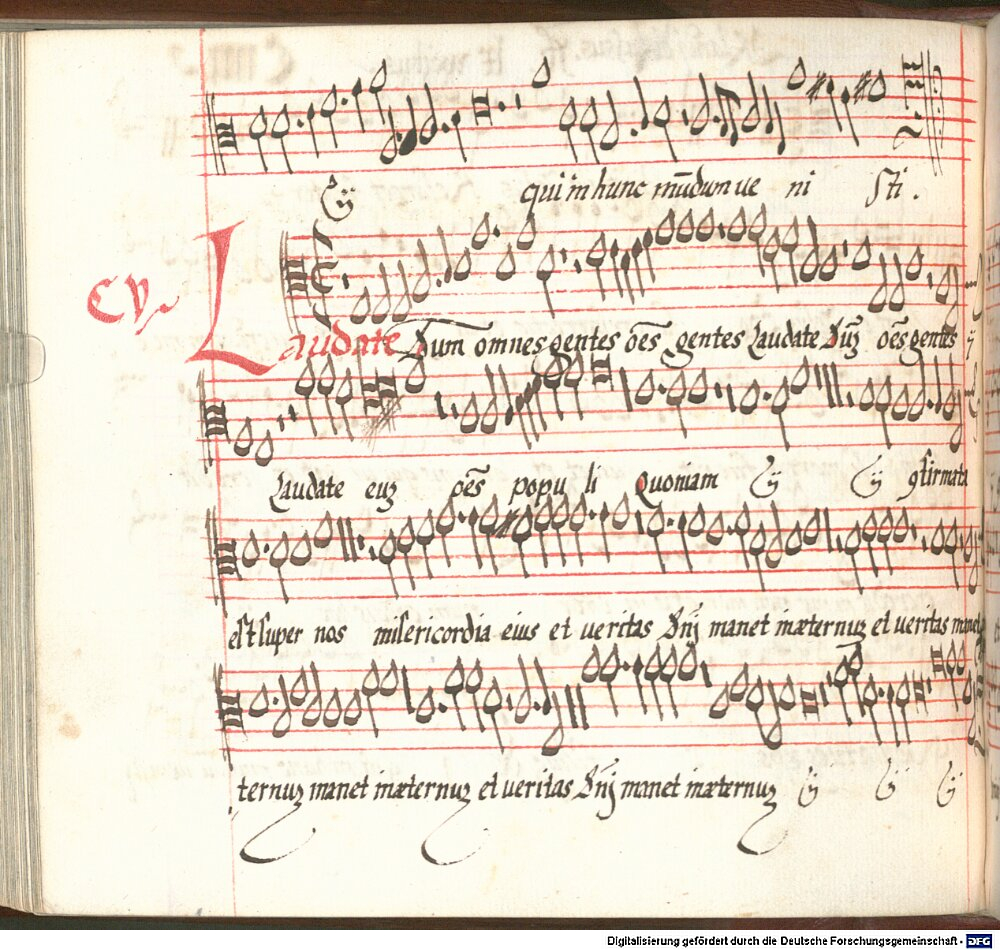 ij qui in hunc mūdum ue ni sti.
CV
Laudate Dum omnes gentes oēs gentes Laudate Dūʒ oēs gentes ij
Laudate euʒ oēs popu li Quoniam ij ij ꝯfirmata
est super nos misericordia eius et ueritas Dnj manet inæternuʒ et ueritas manet
ternuʒ manet inæternuʒ et ueritas Dnj manet inæternuʒ ij ij ij
Digitalisierung gefördert durch die Deutsche Forschungsgemeinschaft - DFG